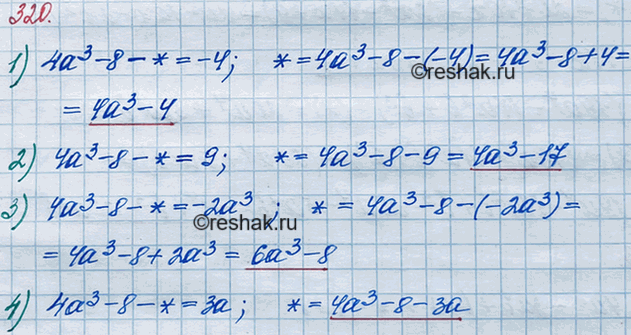 320.
1) 4a³-8-*=-4; *=4a³-8-(-4)=4a³-8+4=
©reshak.ru
=4a³-4
2) 4a³-8-*=9; *=4a³-8-9=4a³-17
3) 4a³-8-*=-2a³; *=4a³-8-(-2a³)=
©reshak.ru
=4a³-8+2a³=6a³-8
4) 4a³-8-*=3a; *=4a³-8-3a